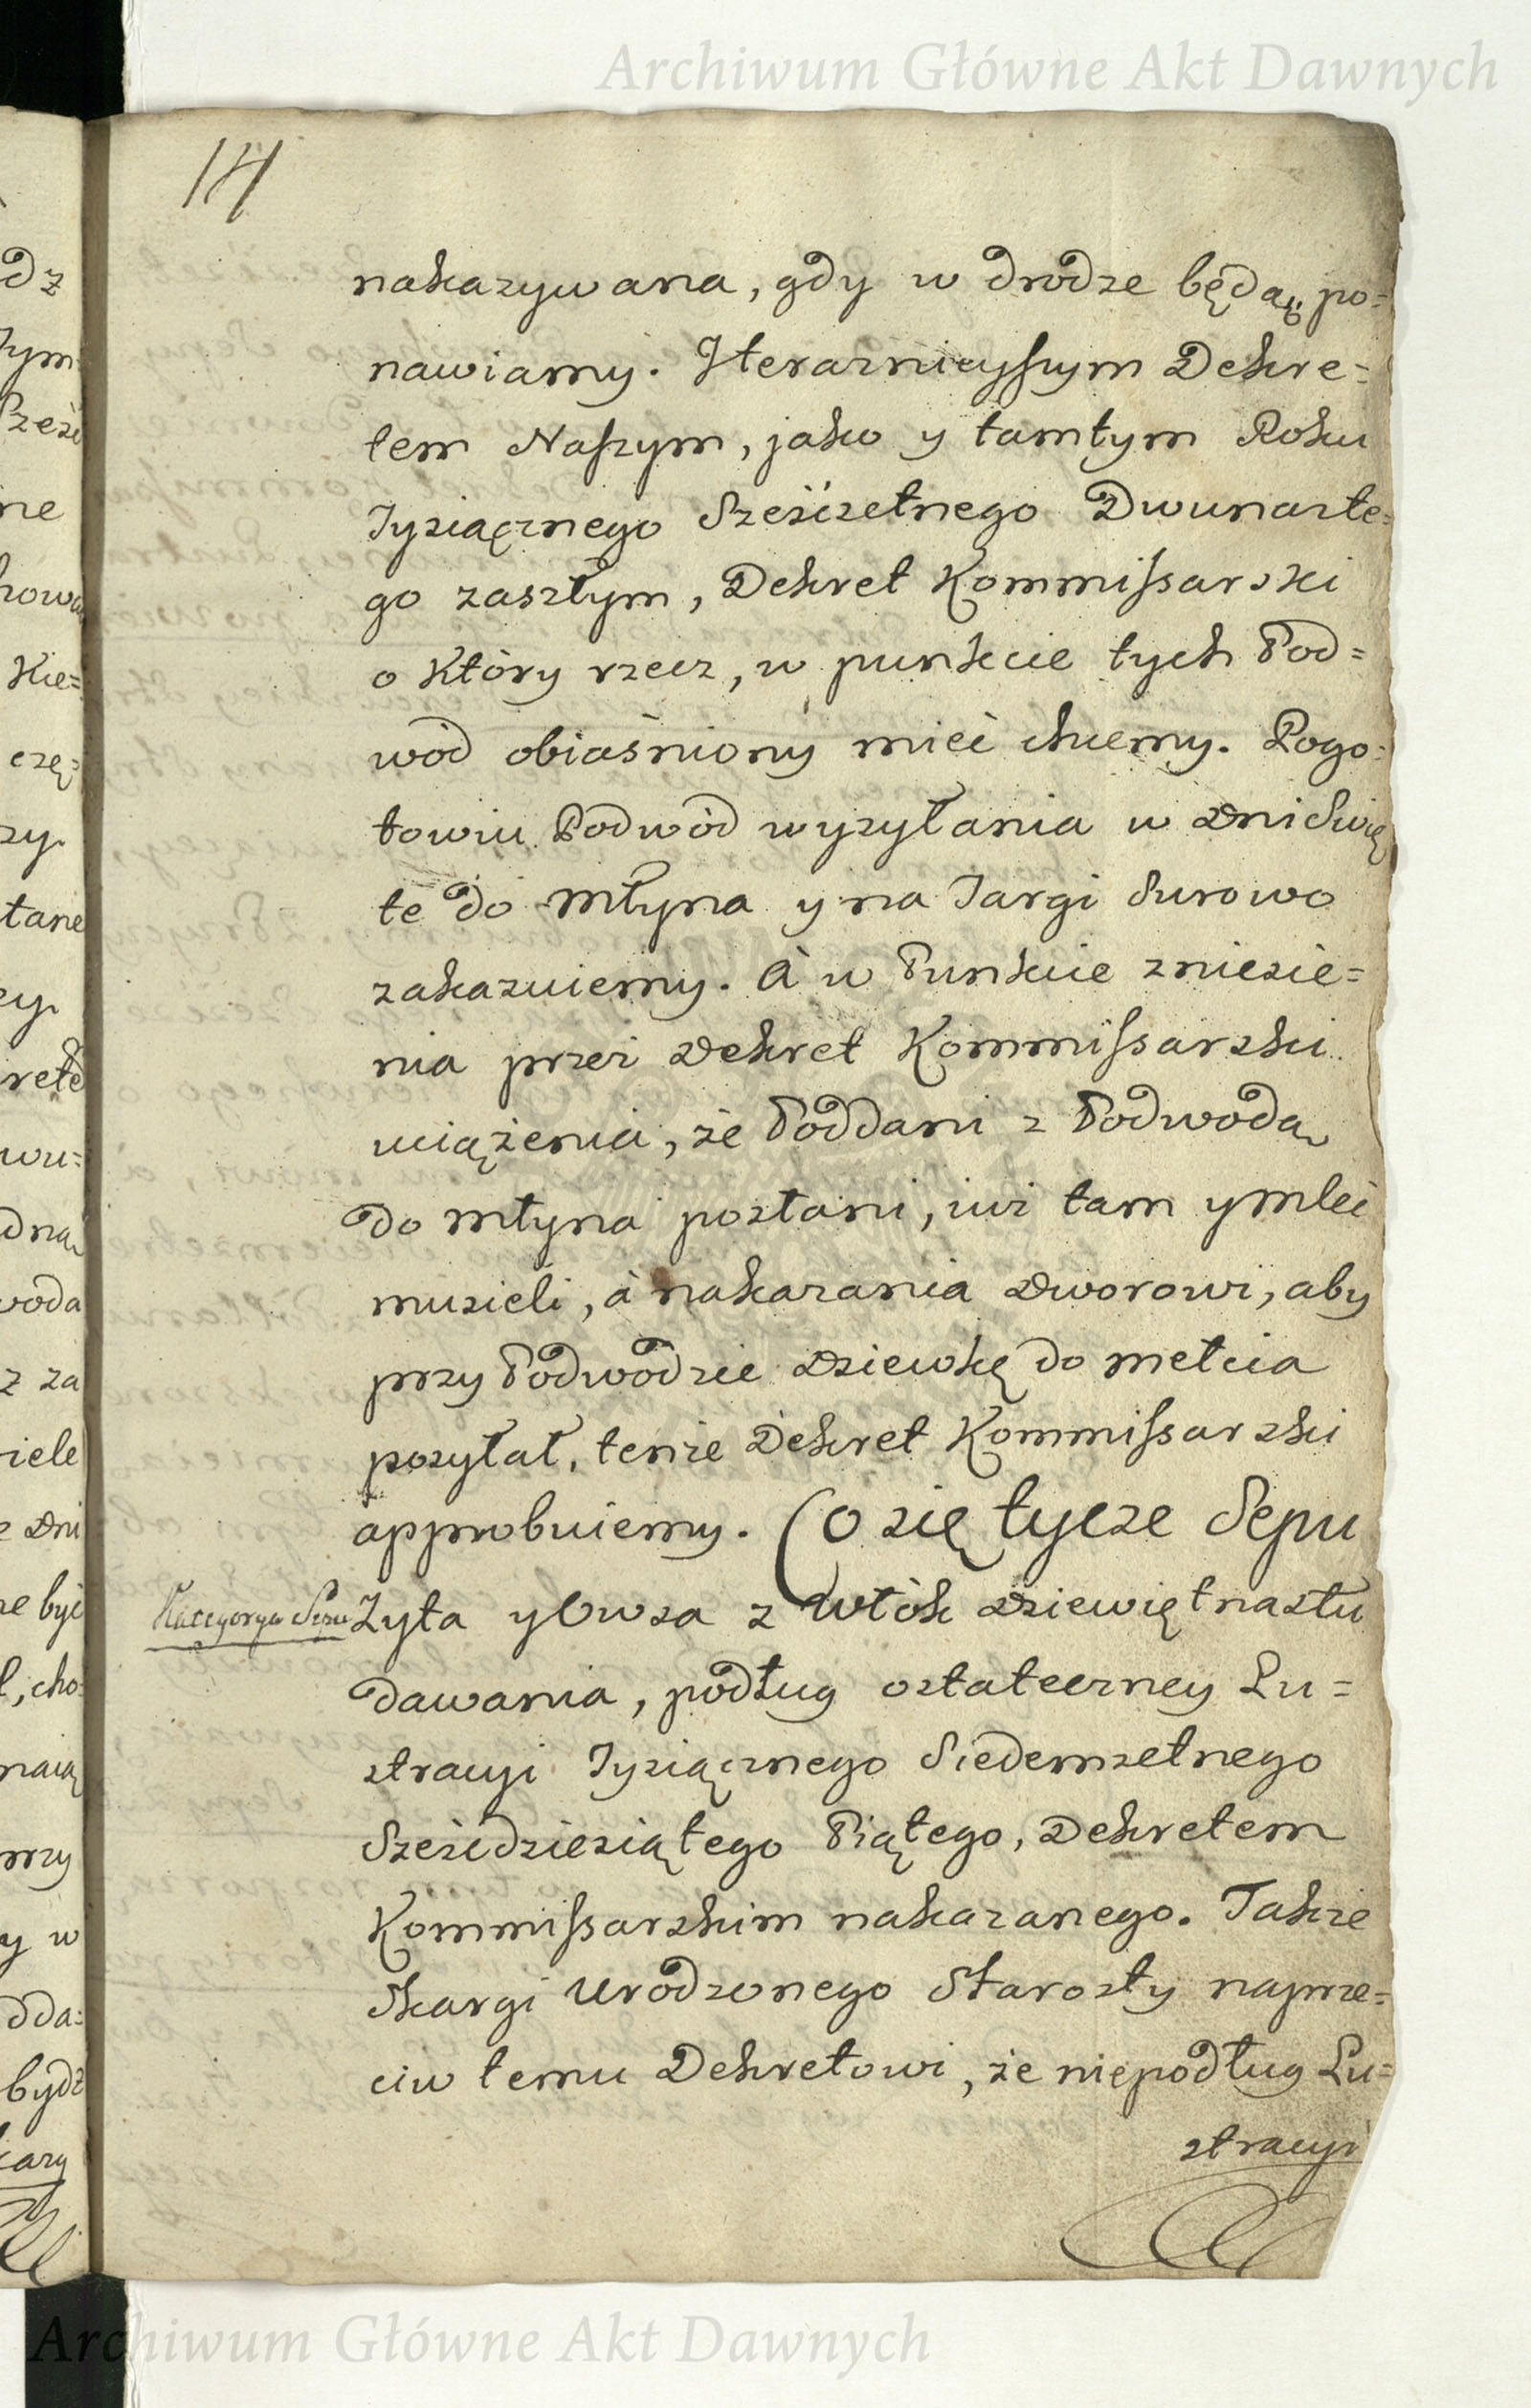 Archiwum Główne Akt Dawnych
14
nakazywana, gdy w drodze będą, po=
nawiamy. Y teraznieyszym Dekre=
tem Naszym, jako y tamtym Roku
Tysiącznego Sześćsetnego Dwunaste=
go zaszłym, Dekret Kommissarski
o który rzecz, w punkcie tych Pod=
wód obiaśniony mieć chcemy. Pogo=
towiu Podwód wysyłania w Dni Swię
te do Młyna y na Targi Surowo
zakazuiemy. A w Punkcie zniesie=
nia przez Dekret Kommissarski
uciążenia, że Poddani z Podwodą
do Młyna posłani, iuż tam y mleć
musieli, á nakazania Dworowi, aby
przy Podwodzie Dziewkę do mełcia
posyłał, tenże Dekret Kommissarski
approbuiemy. Co się tycze Sepu
Kategorya Sepu
Zyta y Owsa z Włók Dziewiętnastu
dawania, podług ostateczney Lu=
stracyi Tysiącznego Siedemsetnego
Sześćdziesiątego Piątego, Dekretem
Kommissarskim nakazanego. Także
Skargi Urodzonego Starosty naprze=
ciw temu Dekretowi, że niepodług Lu=
stracyi
Archiwum Główne Akt Dawnych